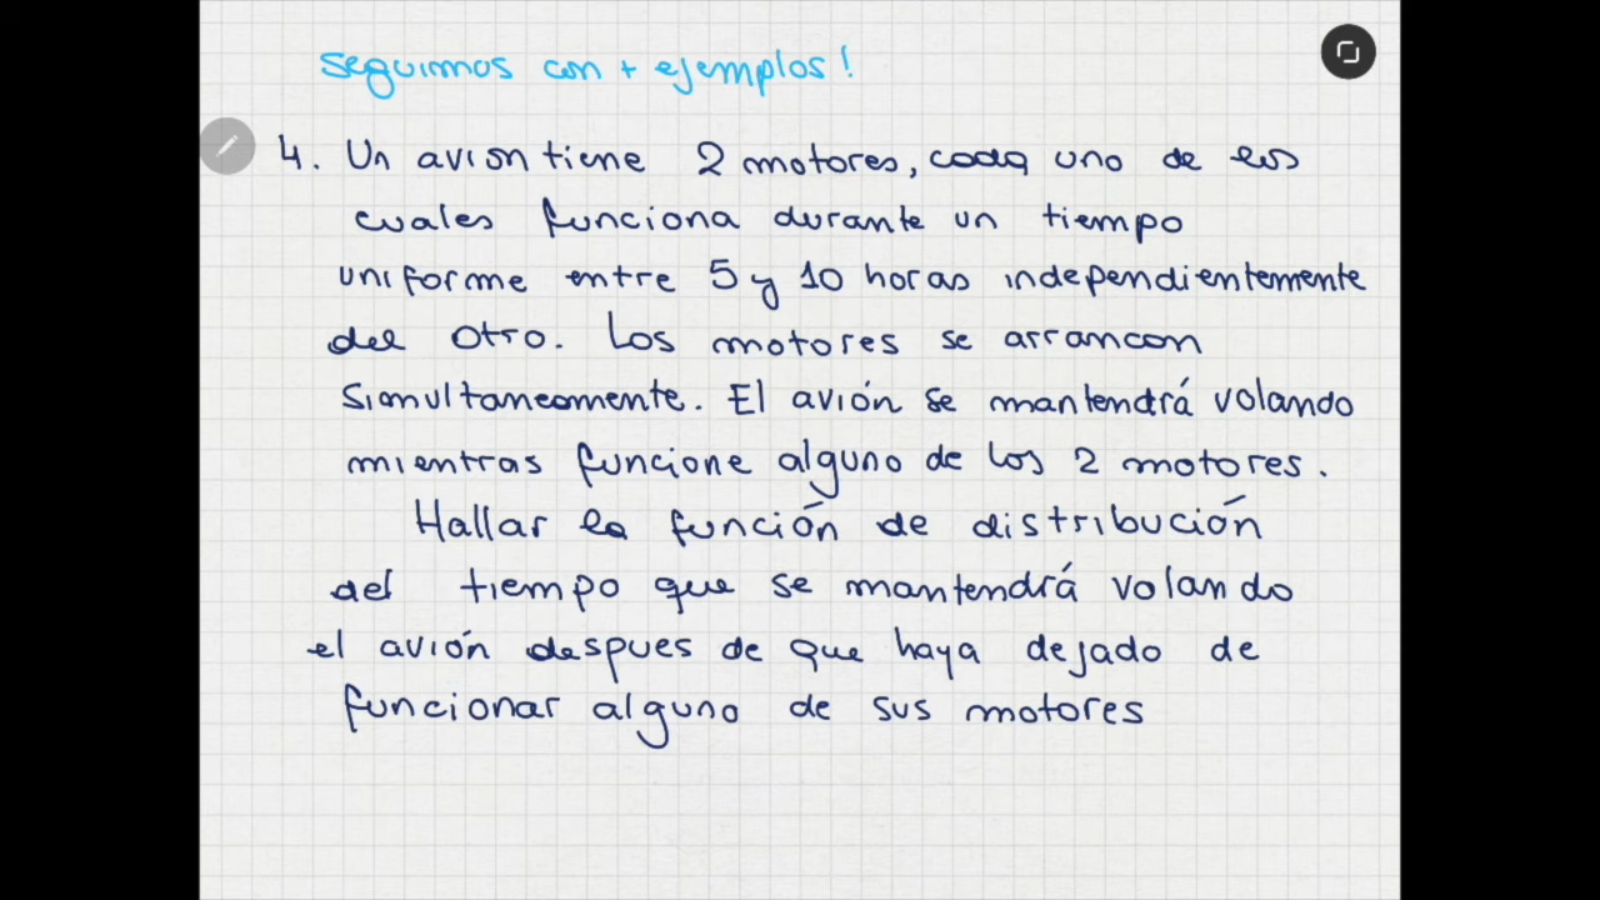 Seguimos con + ejemplos!
4. Un avion tiene 2 motores, cada uno de los
cuales funciona durante un tiempo
uniforme entre 5 y 10 horas independientemente
del otro. Los motores se arrancan
simultaneamente. El avión se mantendrá volando
mientras funcione alguno de los 2 motores.
Hallar la función de distribución
del tiempo que se mantendrá volando
el avión despues de que haya dejado de
funcionar alguno de sus motores